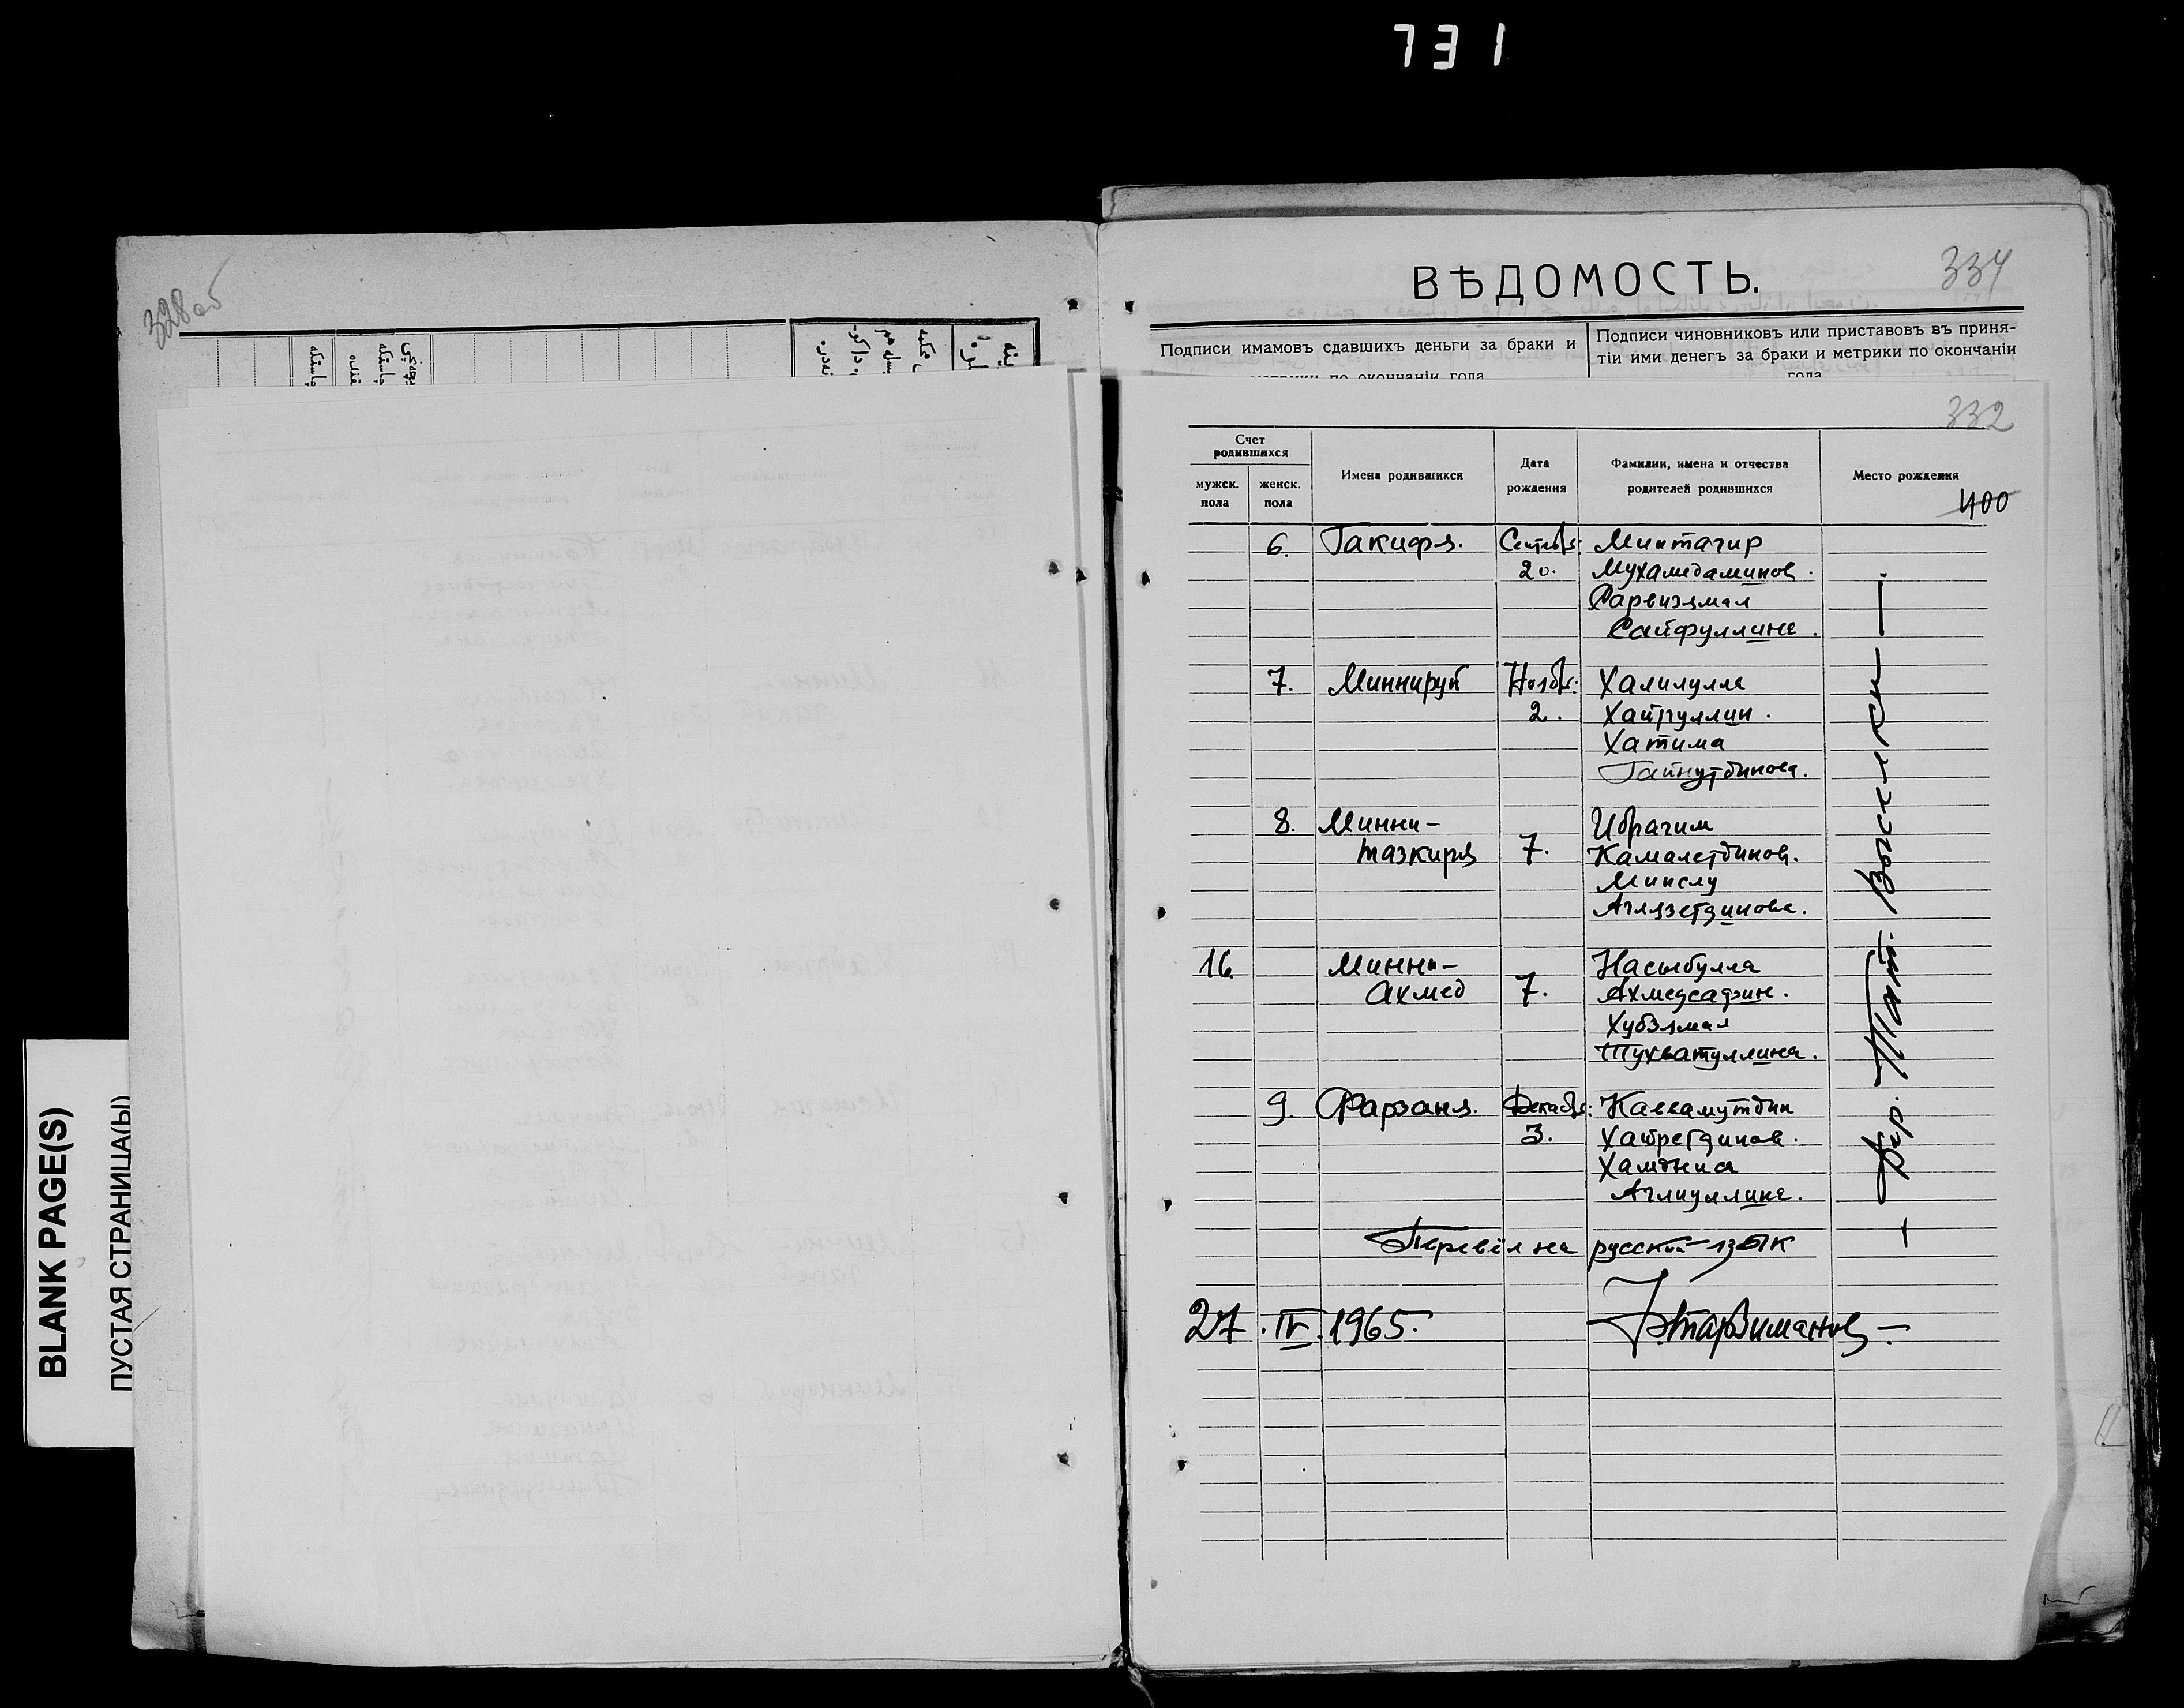 731
328об
ВѢДОМОСТЬ.
334
Подписи имамовъ сдавшихъ деньги за браки и
Подписи чиновниковъ или приставовъ въ приня-
тіи ими денегъ за браки и метрики по окончаніи
метрики по окончаніи года
года
332
Счет
родившихся
мужск.
пола
женск.
пола
Имена родившихся
Дата
рождения
Фамилии, имена и отчества
родителей родившихся
Место рождения
400
6. Гакифя. Сентябр: Минтагир
20. Мухамедаминов.
Сарвизямал
Сайфуллина.
7. Миннируй Ноябр: Халилулла
2. Хайруллин.
Хатима
Гайнутдинова.
8. Минни- Ибрагим
тазкиря 7. Камалетдинов.
Минслу
Аглязетдинова.
16 Минни- Насыбулла
Ахмед 7. Ахмедсадин.
Хубзямал
Тухватуллина.
9. Фарзаня. Декабр: Каввамутдин
3. Хайретдинов.
Хамдниса
Аглиуллина.
— Дер. Тат. Выселки —
Перевёл на русский язык
27. IV. 1965.
BLANK PAGE(S)
ПУСТАЯ СТРАНИЦА(Ы)